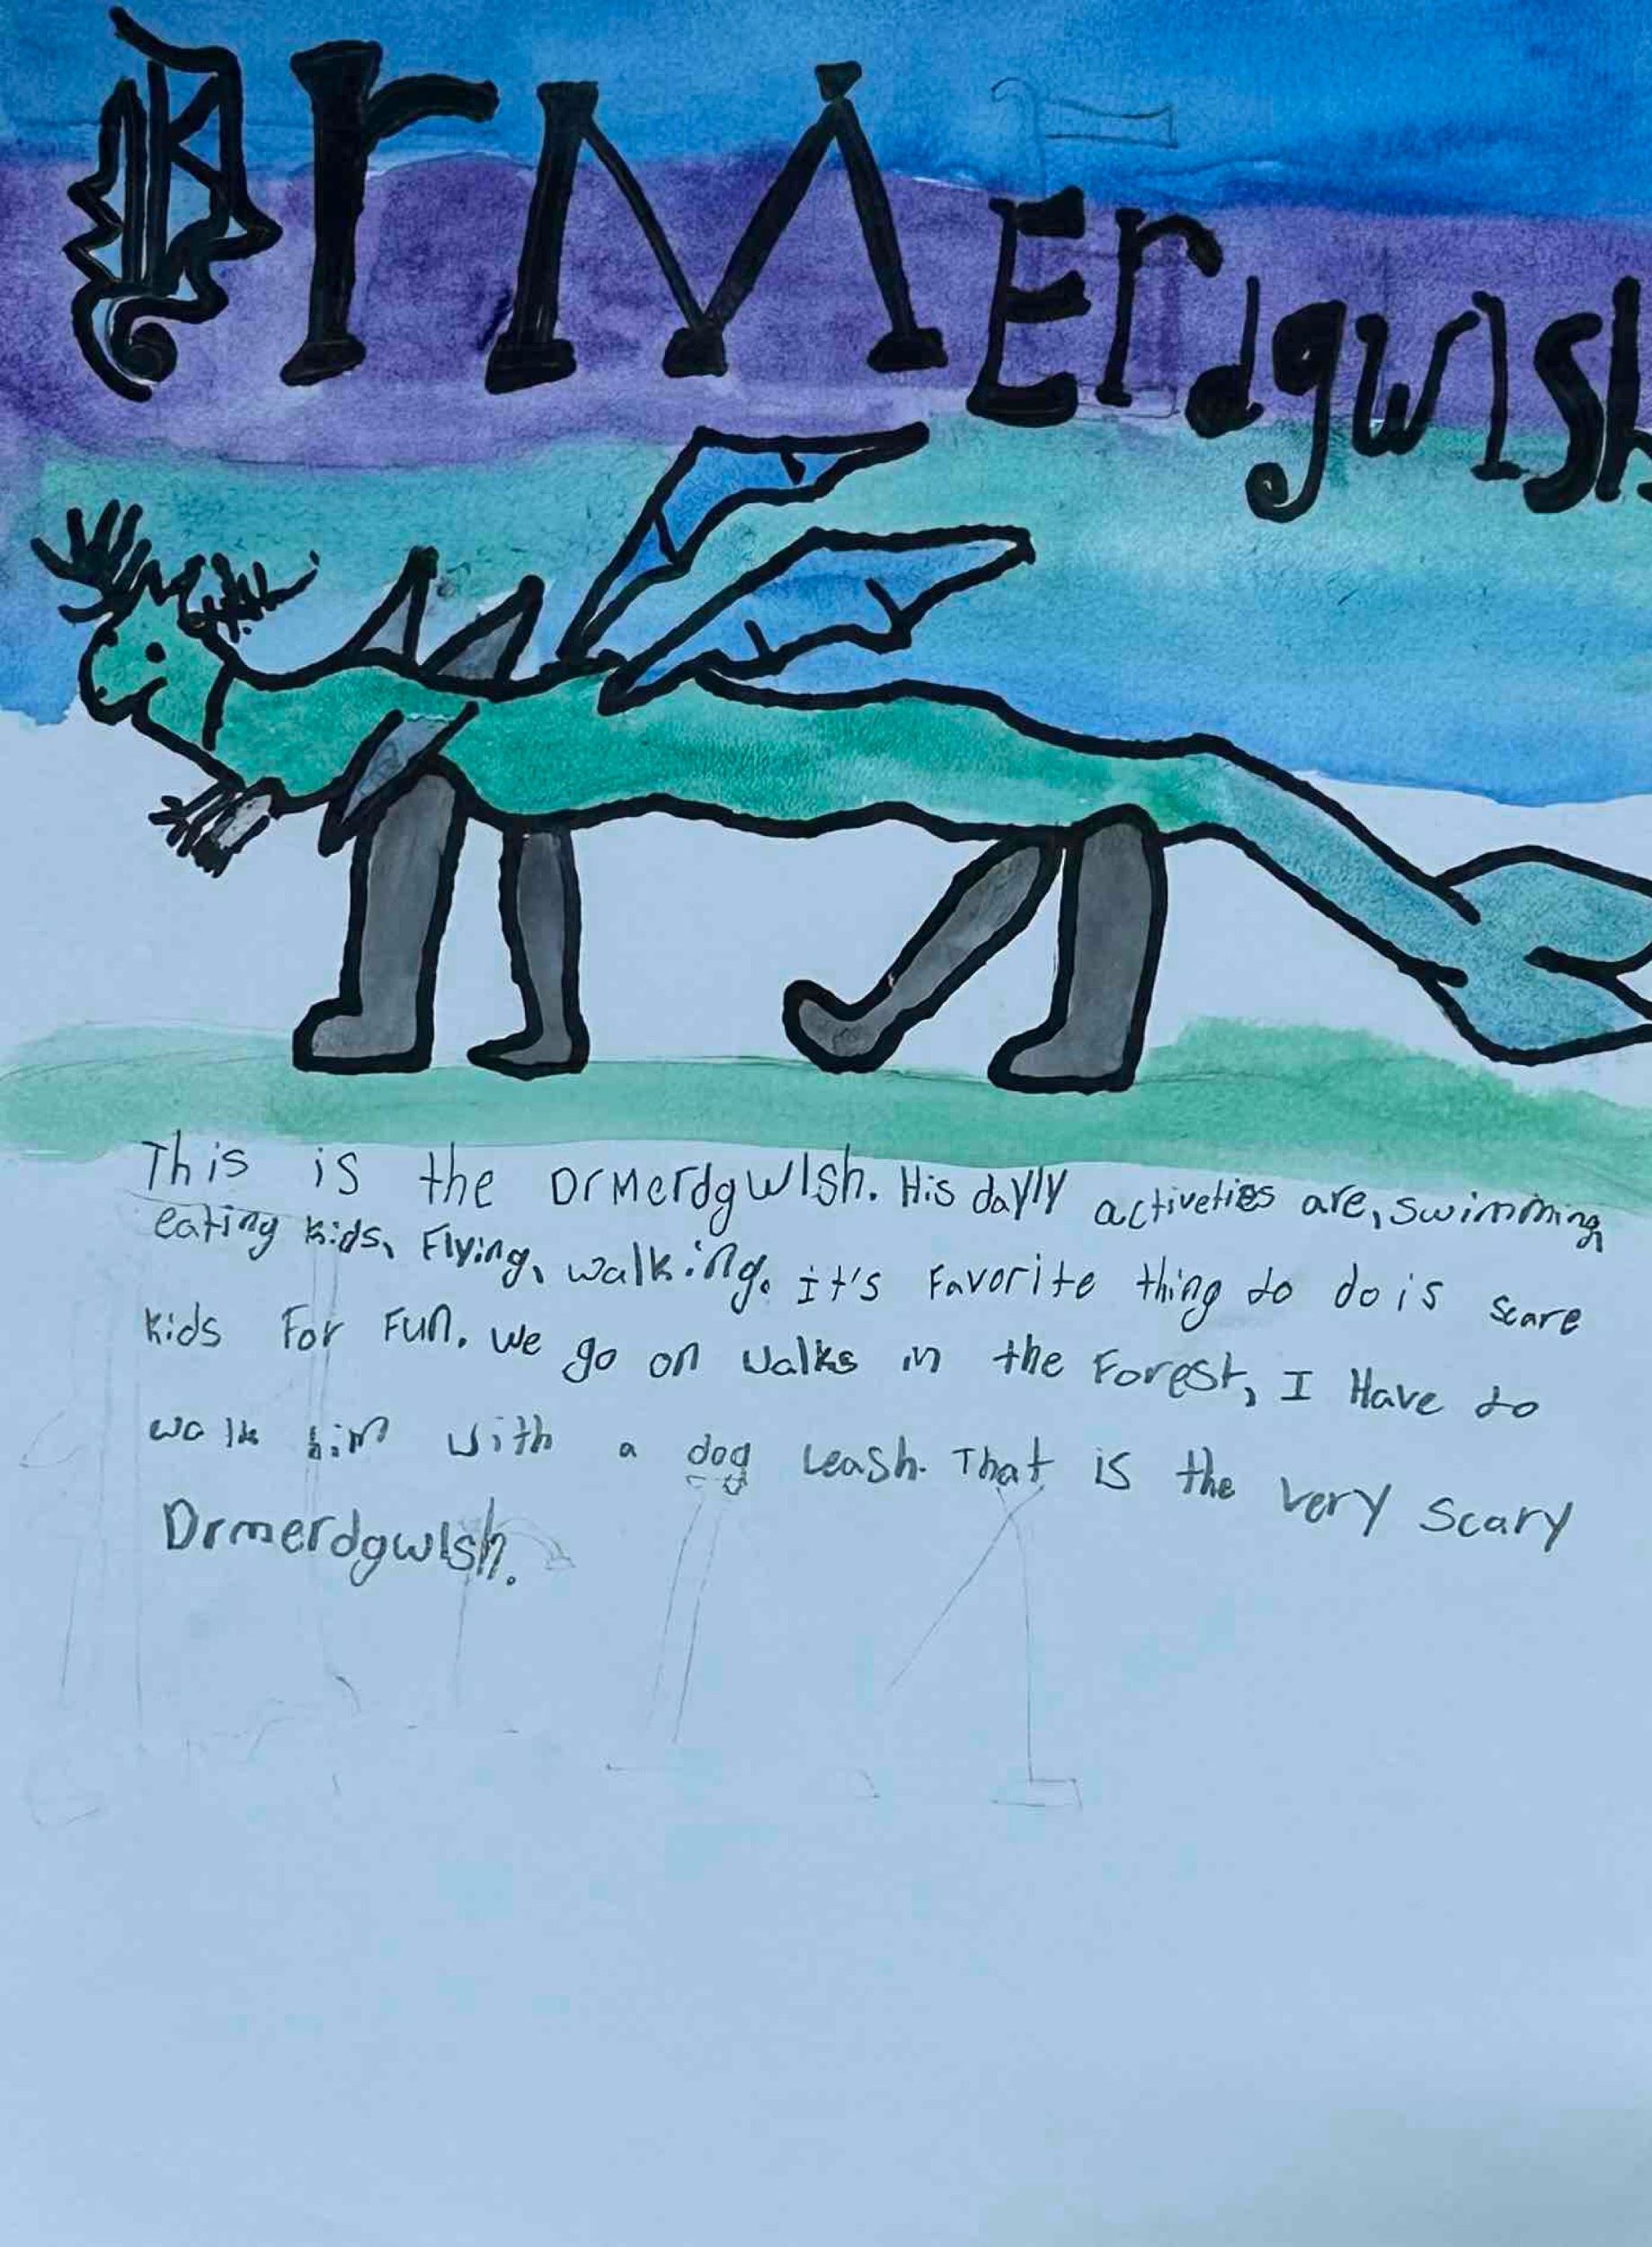 DrMErdgwIsh
This is the DrMerdgwIsh. His dayly activeties are, swimming,
eating kids, Flying, walking. it's Favorite thing to do is scare
kids For Fun. we go on walks in the Forest, I Have to
walk him with a dog Leash. That is the very scary
DrmerdgwIsh.